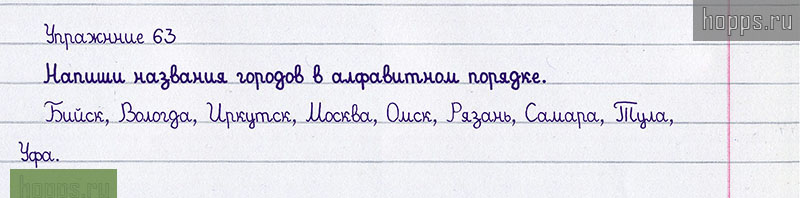 hopps.ru
Упражнние 63
Напиши названия городов в алфавитном порядке.
Бийск, Вологда, Иркутск, Москва, Омск, Рязань, Самара, Тула,
Уфа.
hopps.ru